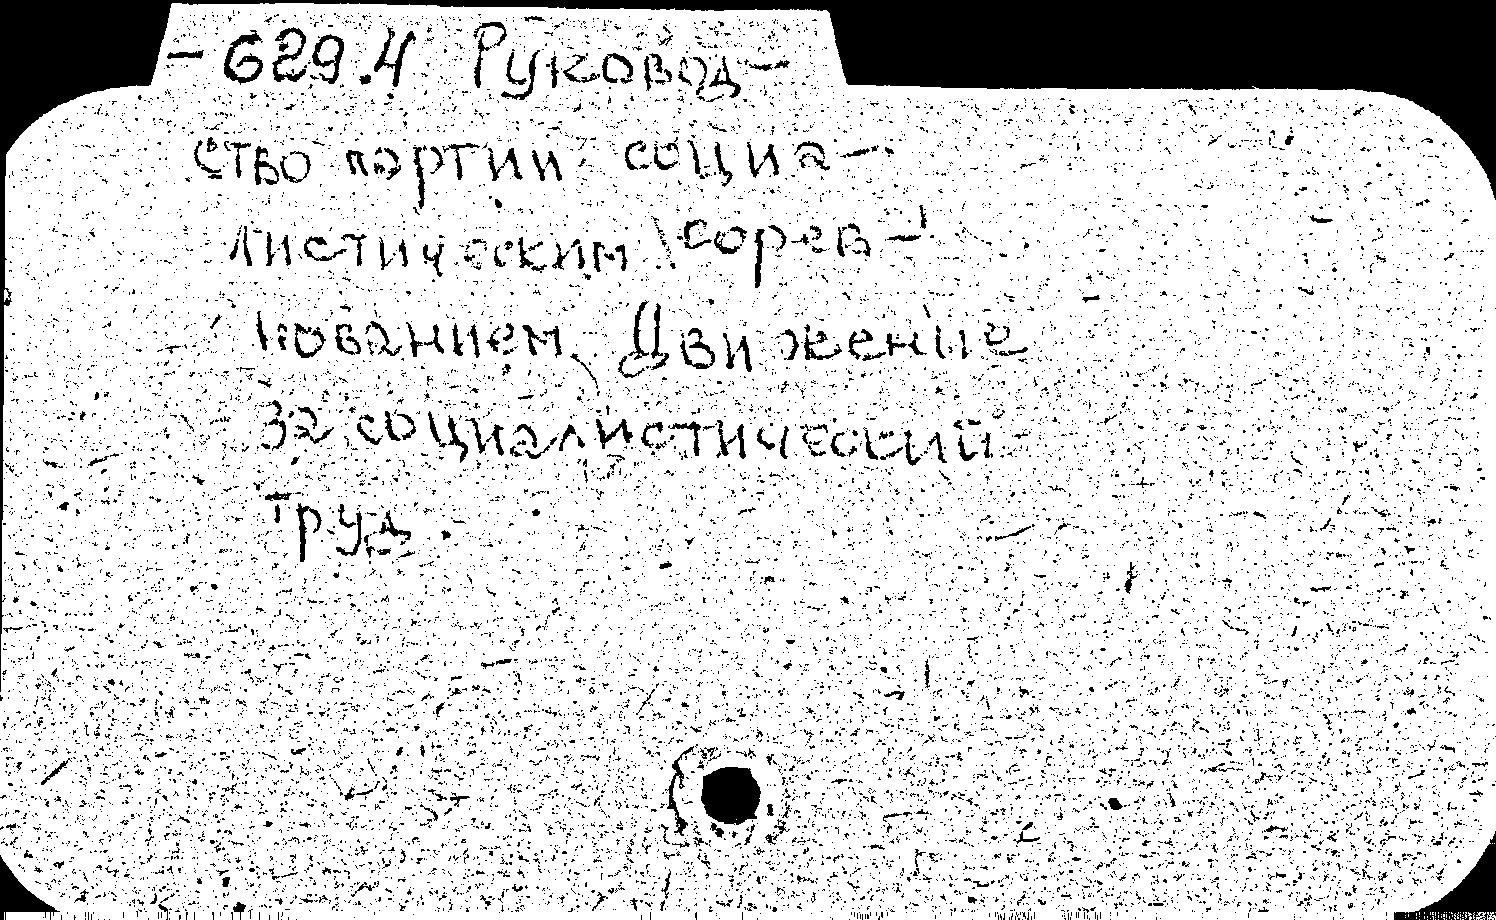 -629.4 Руковод-
ство партии социа-
листическим сорев-
нованием. Движение
за социалистический
труд.